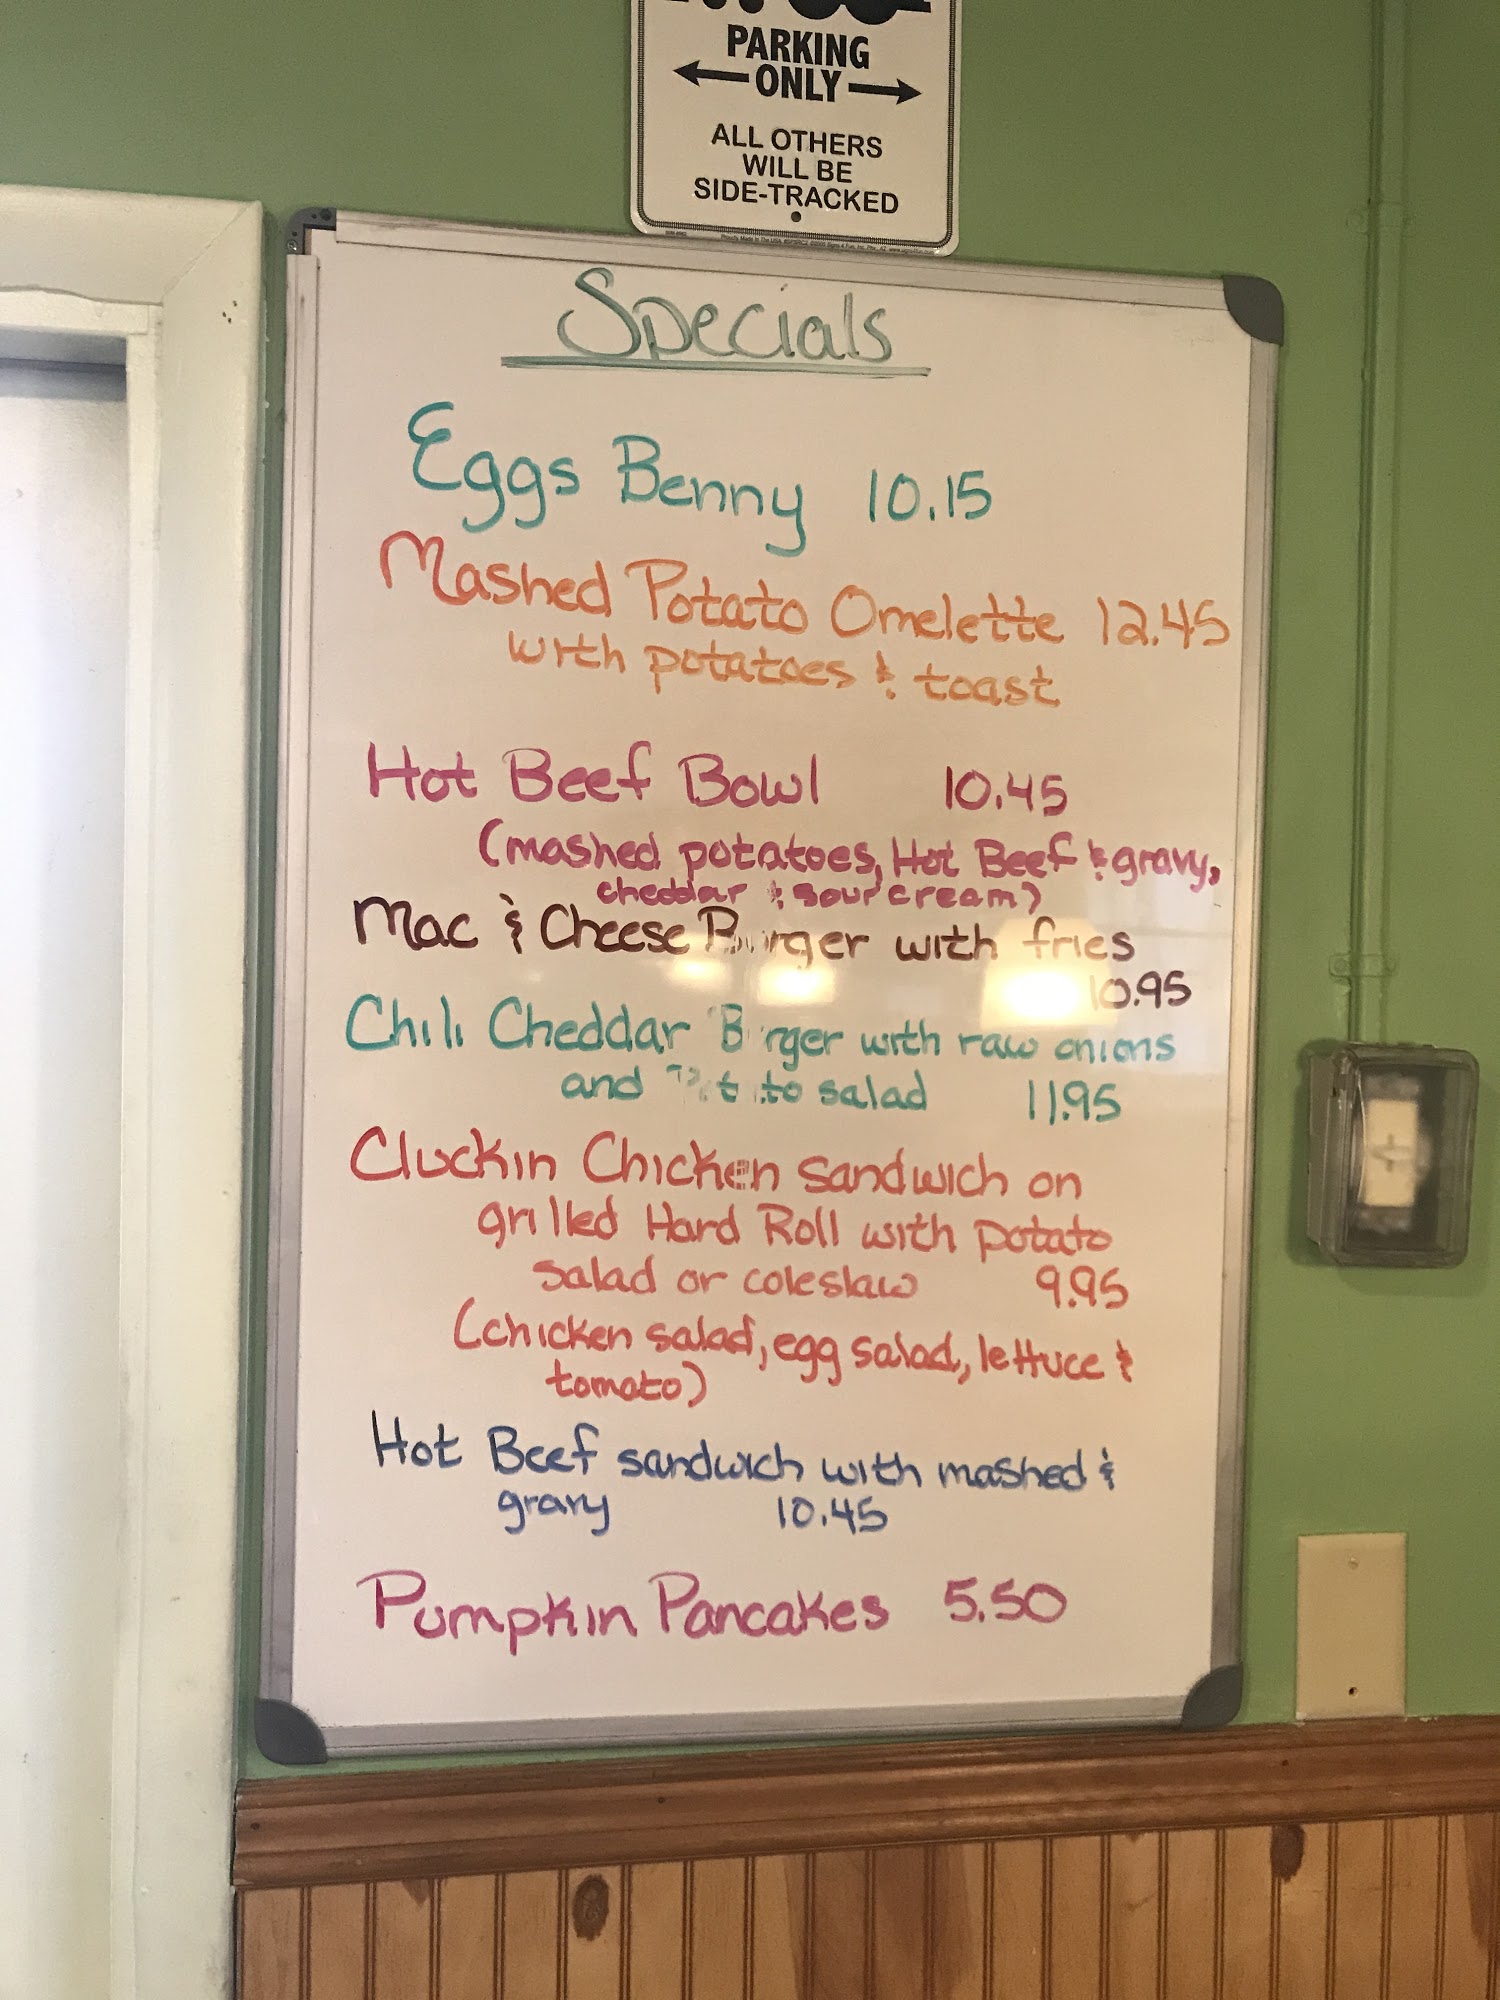 PARKING
ONLY
ALL OTHERS
WILL BE
SIDE-TRACKED
Specials
Eggs Benny 10.15
Mashed Potato Omelette 12.45
with potatoes & toast
Hot Beef Bowl 10.45
(mashed potatoes, Hot Beef & gravy,
cheddar & sour cream)
Mac & Cheese Burger with fries
10.95
Chili Cheddar Burger with raw onions
and Potato salad 11.95
Cluckin Chicken sandwich on
grilled Hard Roll with potato
salad or coleslaw 9.95
(chicken salad, egg salad, lettuce &
tomato)
Hot Beef sandwich with mashed &
gravy 10.45
Pumpkin Pancakes 5.50